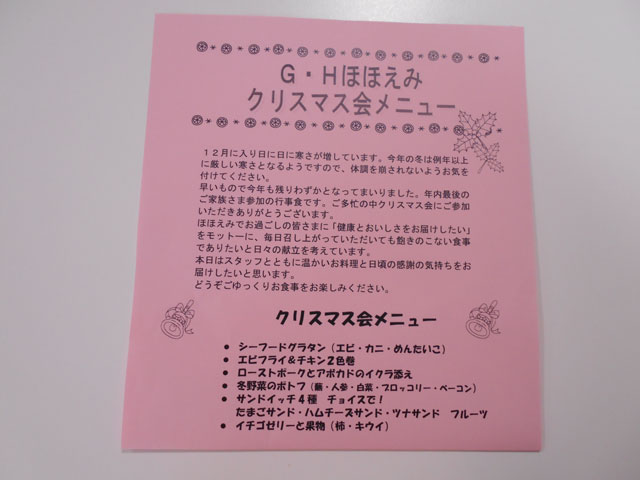 G・Hほほえみ
クリスマス会メニュー
12月に入り日に日に寒さが増しています。今年の冬は例年以上
に厳しい寒さとなるようですので、体調を崩されないようお気を
付けてください。
早いもので今年も残りわずかとなってまいりました。年内最後の
ご家族さま参加の行事食です。ご多忙の中クリスマス会にご参加
いただきありがとうございます。
ほほえみでお過ごしの皆さまに「健康とおいしさをお届けしたい」
をモットーに、毎日召し上がっていただいても飽きのこない食事
でありたいと日々の献立を考えています。
本日はスタッフとともに温かいお料理と日頃の感謝の気持ちをお
届けしたいと思います。
どうぞごゆっくりお食事をお楽しみください。
クリスマス会メニュー
● シーフードグラタン（エビ・カニ・めんたいこ）
● エビフライ＆チキン2色巻
● ローストポークとアボカドのイクラ添え
● 冬野菜のポトフ（蕪・人参・白菜・ブロッコリー・ベーコン）
● サンドイッチ4種 チョイスで！
たまごサンド・ハムチーズサンド・ツナサンド フルーツ
● イチゴゼリーと果物（柿・キウイ）